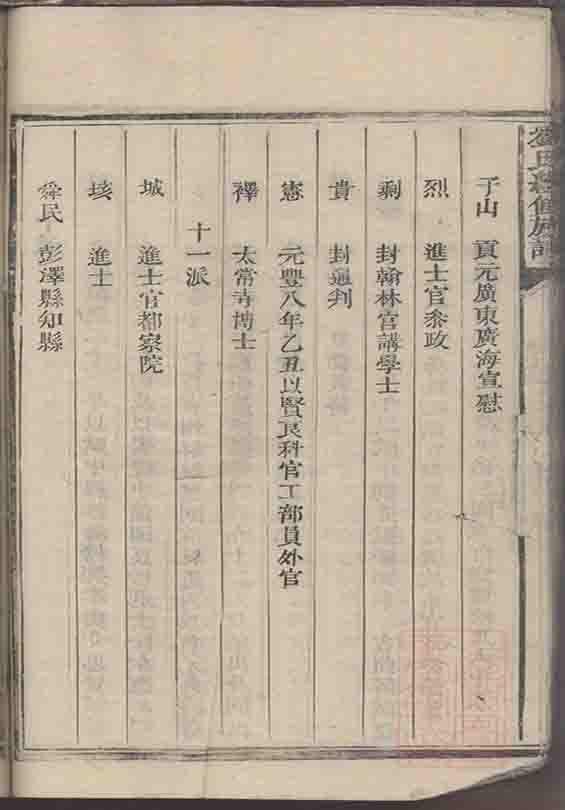 劉氏重修族譜
于山 貢元廣東廣海宣慰
烈 進士官叅政
剩 封翰林官講學士
貴 封通判
憲 元豐八年乙丑以賢良科官工部員外官
禪 太常寺博士
十一派
城 進士官都察院
垓 進士
舜民 彭澤縣知縣